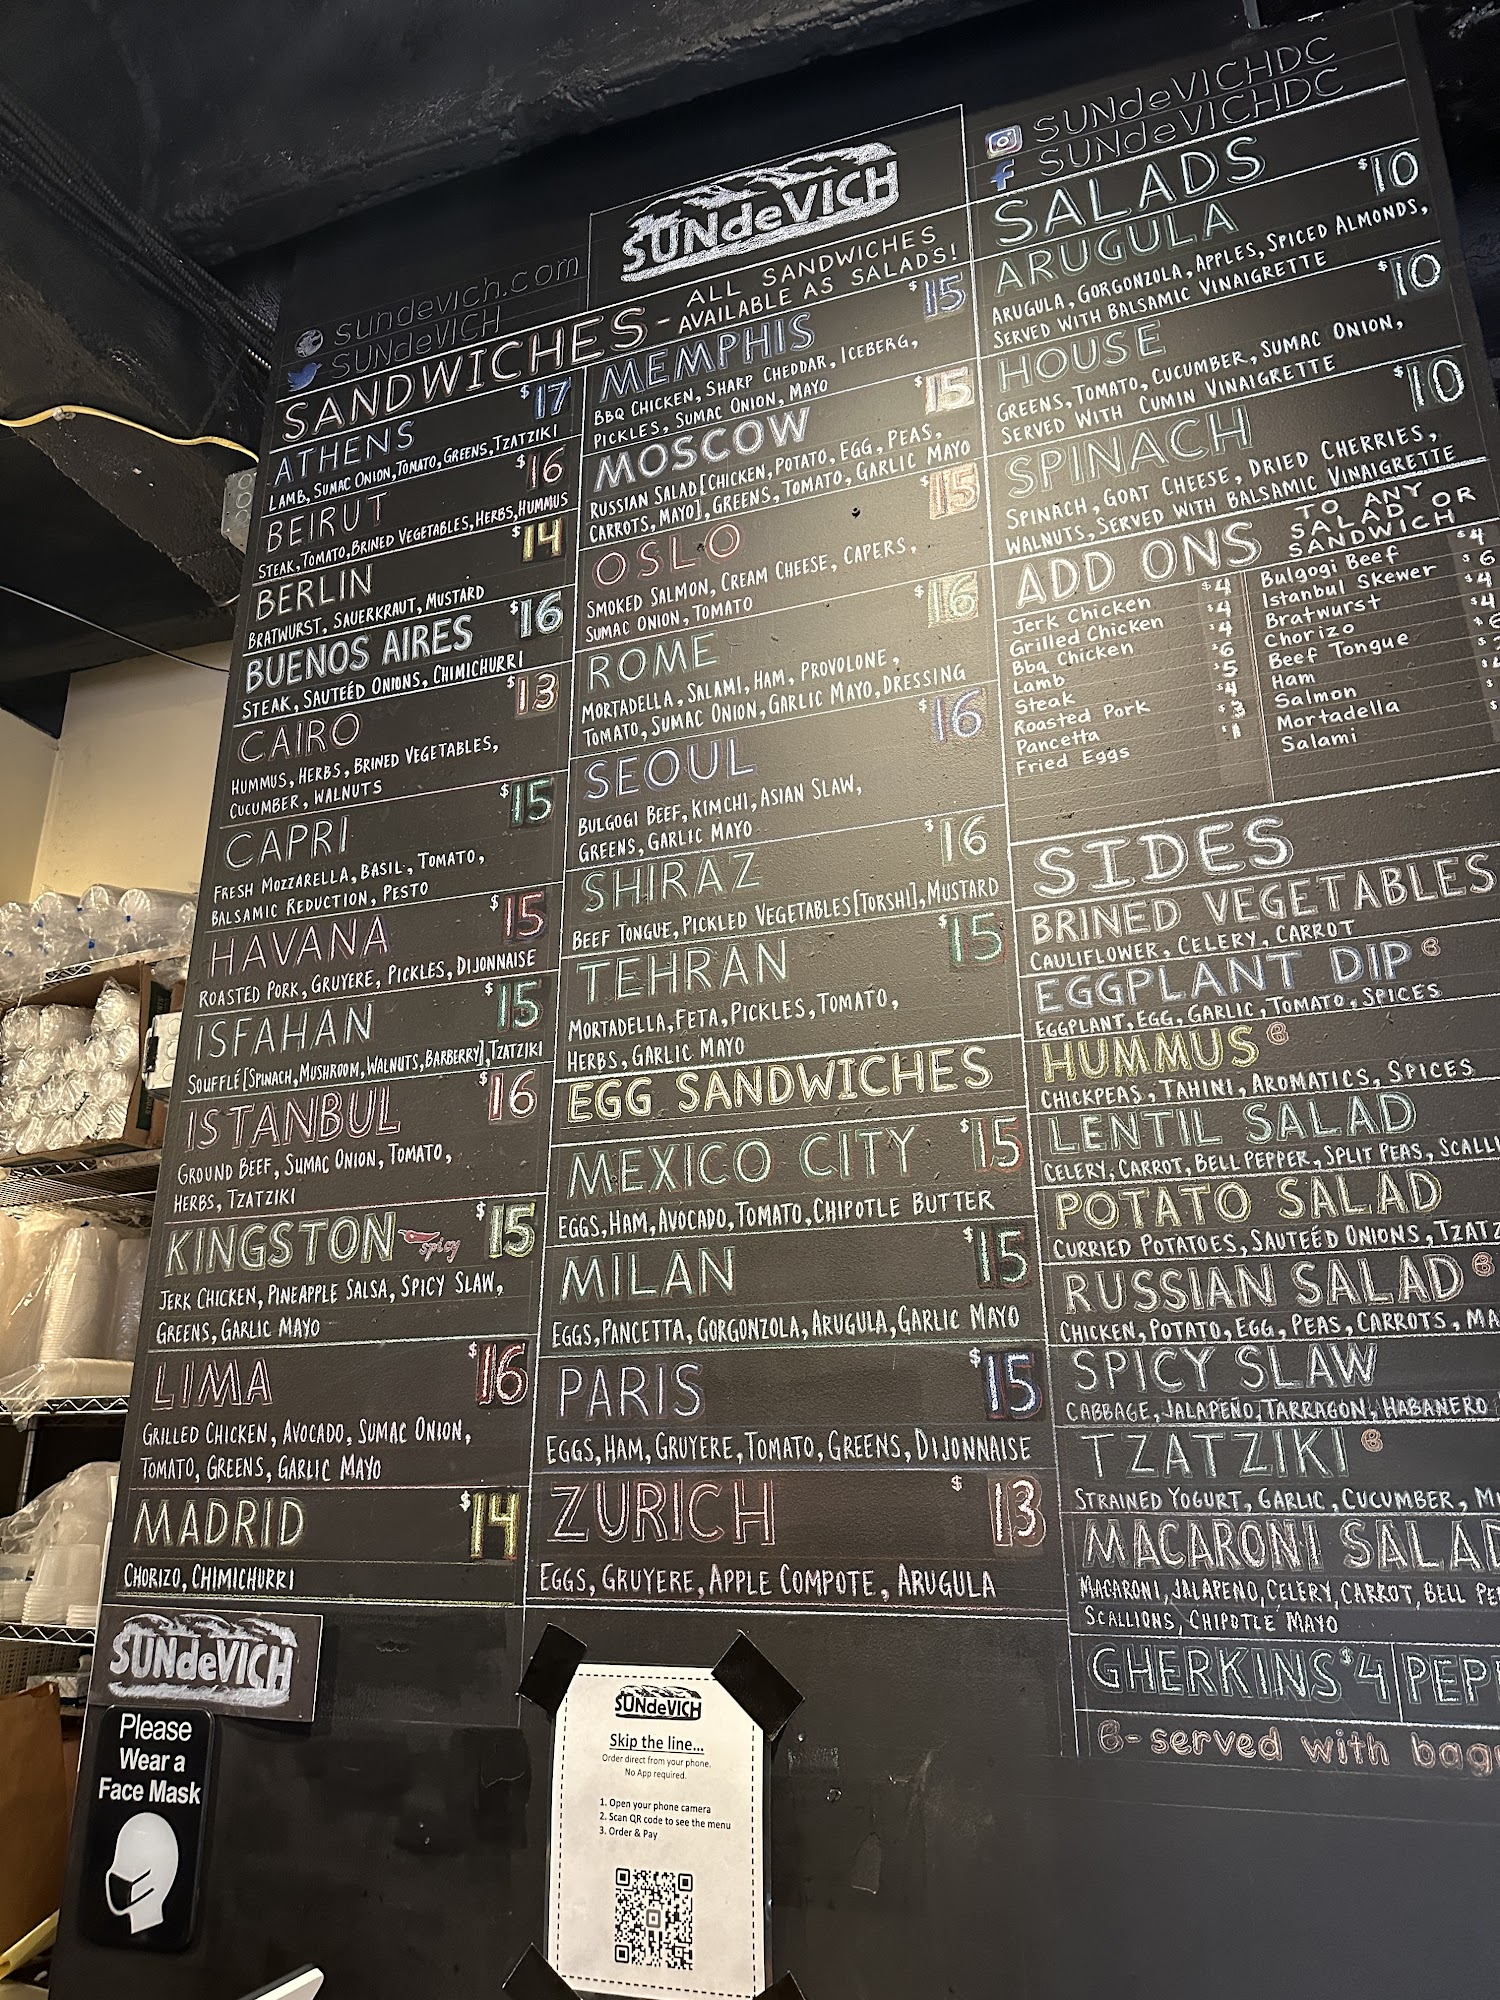 sundevich.com
SUNdeVICH
SUNdeVICH
SUNdeVICHDC
SUNdeVICHDC
SANDWICHES - ALL SANDWICHES
AVAILABLE AS SALADS!
ATHENS $17
LAMB, SUMAC ONION, TOMATO, GREENS, TZATZIKI
BEIRUT $16
STEAK, TOMATO, BRINED VEGETABLES, HERBS, HUMMUS
BERLIN $14
BRATWURST, SAUERKRAUT, MUSTARD
BUENOS AIRES $16
STEAK, SAUTEÉD ONIONS, CHIMICHURRI
CAIRO $13
HUMMUS, HERBS, BRINED VEGETABLES,
CUCUMBER, WALNUTS
CAPRI $15
FRESH MOZZARELLA, BASIL, TOMATO,
BALSAMIC REDUCTION, PESTO
HAVANA $15
ROASTED PORK, GRUYERE, PICKLES, DIJONNAISE
ISFAHAN $15
SOUFFLÉ [SPINACH, MUSHROOM, WALNUTS, BARBERRY], TZATZIKI
ISTANBUL $16
GROUND BEEF, SUMAC ONION, TOMATO,
HERBS, TZATZIKI
KINGSTON spicy $15
JERK CHICKEN, PINEAPPLE SALSA, SPICY SLAW,
GREENS, GARLIC MAYO
LIMA $16
GRILLED CHICKEN, AVOCADO, SUMAC ONION,
TOMATO, GREENS, GARLIC MAYO
MADRID $14
CHORIZO, CHIMICHURRI
MEMPHIS $15
BBQ CHICKEN, SHARP CHEDDAR, ICEBERG,
PICKLES, SUMAC ONION, MAYO
MOSCOW $15
RUSSIAN SALAD [CHICKEN, POTATO, EGG, PEAS,
CARROTS, MAYO], GREENS, TOMATO, GARLIC MAYO
OSLO $15
SMOKED SALMON, CREAM CHEESE, CAPERS,
SUMAC ONION, TOMATO
ROME $16
MORTADELLA, SALAMI, HAM, PROVOLONE,
TOMATO, SUMAC ONION, GARLIC MAYO, DRESSING
SEOUL $16
BULGOGI BEEF, KIMCHI, ASIAN SLAW,
GREENS, GARLIC MAYO
SHIRAZ $16
BEEF TONGUE, PICKLED VEGETABLES [TORSHI], MUSTARD
TEHRAN $15
MORTADELLA, FETA, PICKLES, TOMATO,
HERBS, GARLIC MAYO
EGG SANDWICHES
MEXICO CITY $15
EGGS, HAM, AVOCADO, TOMATO, CHIPOTLE BUTTER
MILAN $15
EGGS, PANCETTA, GORGONZOLA, ARUGULA, GARLIC MAYO
PARIS $15
EGGS, HAM, GRUYERE, TOMATO, GREENS, DIJONNAISE
ZURICH $13
EGGS, GRUYERE, APPLE COMPOTE, ARUGULA
SALADS
ARUGULA $10
ARUGULA, GORGONZOLA, APPLES, SPICED ALMONDS,
SERVED WITH BALSAMIC VINAIGRETTE
HOUSE $10
GREENS, TOMATO, CUCUMBER, SUMAC ONION,
SERVED WITH CUMIN VINAIGRETTE
SPINACH $10
SPINACH, GOAT CHEESE, DRIED CHERRIES,
WALNUTS, SERVED WITH BALSAMIC VINAIGRETTE
ADD ONS TO ANY
SALAD OR
SANDWICH
Jerk Chicken $4
Grilled Chicken $4
Bbq Chicken $4
Lamb $6
Steak $5
Roasted Pork $4
Pancetta $3
Fried Eggs $1
Bulgogi Beef $4
Istanbul Skewer $6
Bratwurst $4
Chorizo $4
Beef Tongue
Ham
Salmon
Mortadella
Salami
SIDES
BRINED VEGETABLES
CAULIFLOWER, CELERY, CARROT
EGGPLANT DIP B
EGGPLANT, EGG, GARLIC, TOMATO, SPICES
HUMMUS B
CHICKPEAS, TAHINI, AROMATICS, SPICES
LENTIL SALAD
CELERY, CARROT, BELL PEPPER, SPLIT PEAS, SCALLI
POTATO SALAD
CURRIED POTATOES, SAUTEÉD ONIONS, TZATZ
RUSSIAN SALAD B
CHICKEN, POTATO, EGG, PEAS, CARROTS, MA
SPICY SLAW
CABBAGE, JALAPEÑO, TARRAGON, HABANERO
TZATZIKI B
STRAINED YOGURT, GARLIC, CUCUMBER, MI
MACARONI SALAD
MACARONI, JALAPENO, CELERY, CARROT, BELL PE
SCALLIONS, CHIPOTLE MAYO
GHERKINS $4 PEP
B - served with bag
SUNdeVICH
Please
Wear a
Face Mask
SUNdeVICH
Skip the line...
Order direct from your phone.
No App required.
1. Open your phone camera
2. Scan QR code to see the menu
3. Order & Pay